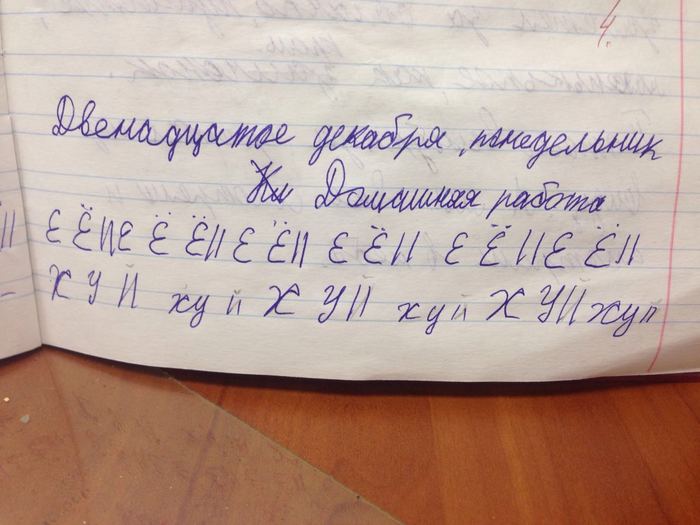 Двенадцатое декабря, понедельник
Домашняя работа
Е Ё И Е Ё Ё И Е Ё И Е Ё И Е Ё И Е Ё И
Х У Й ху й Х У Й хуй Х У Й хуй